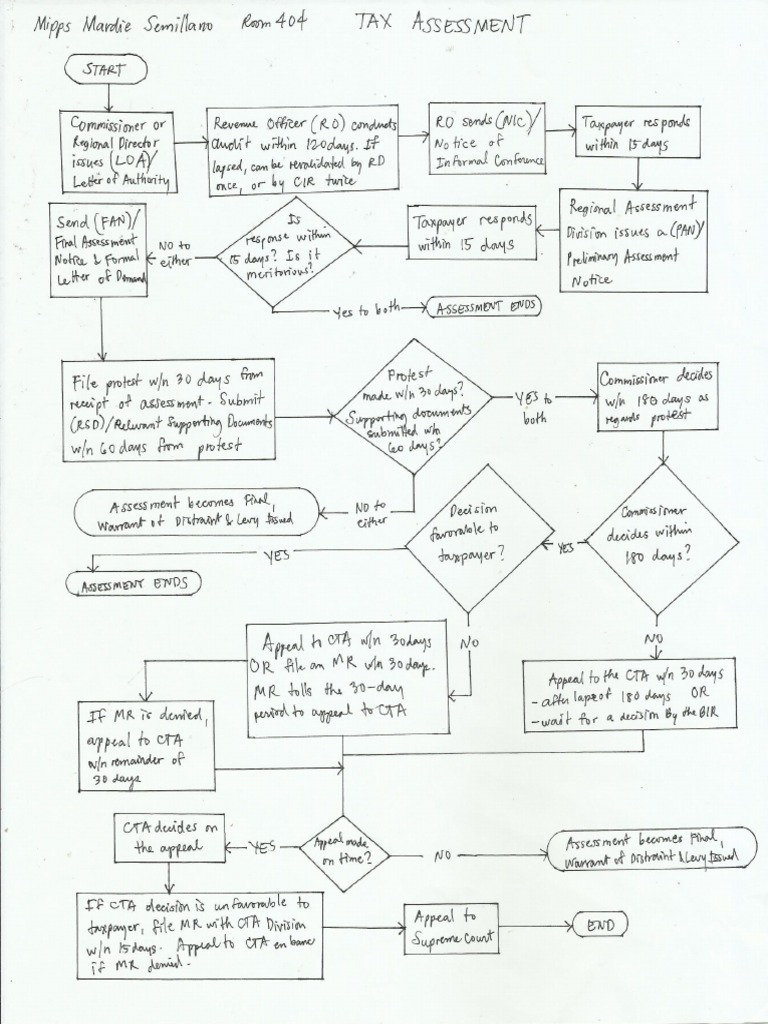 Mipps Mardie Semillano Room 404 TAX ASSESSMENT
START
Commissioner or
Regional Director
issues (LOA)/
Letter of Authority
Revenue Officer (RO) conducts
audit within 120 days. If
lapsed, can be revalidated by RD
once, or by CIR twice
RO sends (NIC)/
Notice of
Informal Conference
Taxpayer responds
within 15 days
Regional Assessment
Division issues a (PAN)/
Preliminary Assessment
Notice
Taxpayer responds
within 15 days
Is
response within
15 days? Is it
meritorious?
NO to
either
Send (FAN)/
Final Assessment
Notice & Formal
Letter of Demand
Yes to both
ASSESSMENT ENDS
File protest w/n 30 days from
receipt of assessment. Submit
(RSD)/Relevant Supporting Documents
w/n 60 days from protest
Protest
made w/n 30 days?
Supporting documents
submitted w/n
60 days?
YES to
both
Commissioner decides
w/n 180 days as
regards protest
NO to
either
Assessment becomes Final,
Warrant of Distraint & Levy Issued
Commissioner
decides within
180 days?
YES
Decision
favorable to
taxpayer?
YES
ASSESSMENT ENDS
NO
NO
Appeal to CTA w/n 30 days
OR file an MR w/n 30 days.
MR tolls the 30-day
period to appeal to CTA
Appeal to the CTA w/n 30 days
- after lapse of 180 days OR
- wait for a decision By the BIR
If MR is denied,
appeal to CTA
w/n remainder of
30 days
Appeal made
on time?
YES
CTA decides on
the appeal
NO
Assessment becomes Final,
Warrant of Distraint & Levy Issued
If CTA decision is unfavorable to
taxpayer, file MR with CTA Division
w/n 15 days. Appeal to CTA en banc
if MR denied.
Appeal to
Supreme Court
END